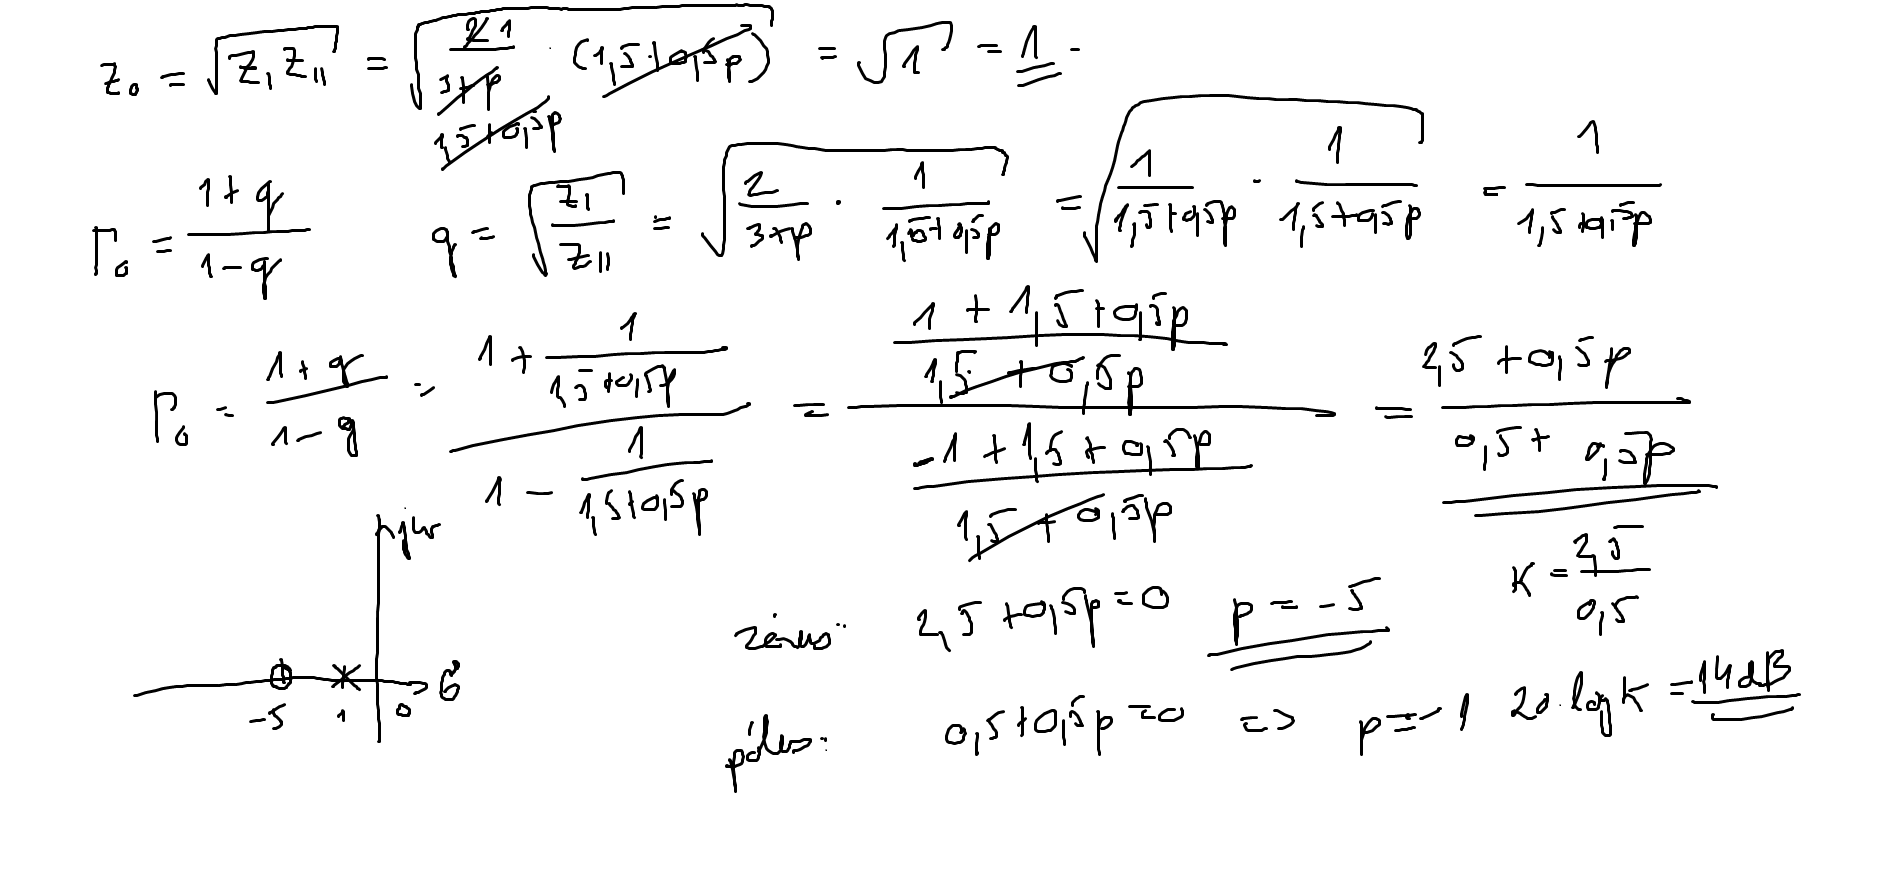 Z₀ = √(Z_I Z_II) = √(2̶ 1 / (3̶+̶p̶ 1̶,̶5̶+̶0̶,̶5̶p̶) · (1,5+0,5p)) = √1 = 1
Γ₀ = (1+q)/(1-q) q = √(Z_I/Z_II) = √(2/(3+p) · 1/(1,5+0,5p)) = √(1/(1,5+0,5p) · 1/(1,5+0,5p)) = 1/(1,5+0,5p)
Γ₀ = (1+q)/(1-q) = (1 + 1/(1,5+0,5p))/(1 - 1/(1,5+0,5p)) = ((1+1,5+0,5p)/(1,5+0,5p))/((-1+1,5+0,5p)/(1,5+0,5p)) = (2,5+0,5p)/(0,5+0,5p)
jω
K = 2,5/0,5
zérus: 2,5+0,5p=0 p = -5
-5 1 0 σ
pólus: 0,5+0,5p=0 => p=-1 20·log K = 14dB